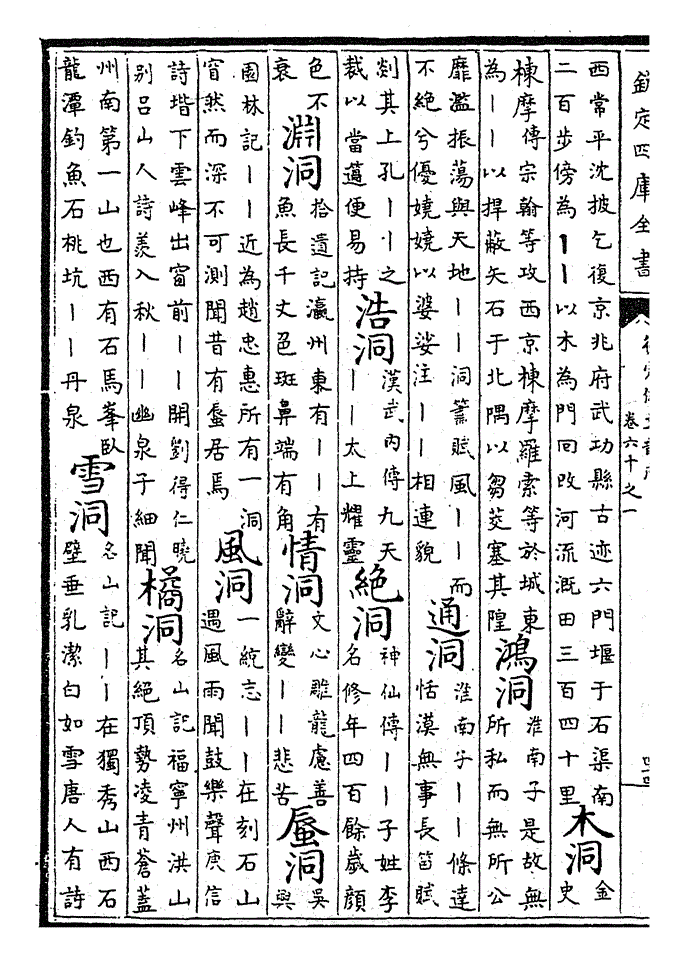 欽定四庫全書
卷六十之一
西常平沈披乞復京兆府武功縣古迹六門堰于石渠南
二百步傍為丨丨以木為門回改河流溉田三百四十里
木洞
金
史
棟摩傳宗翰等攻西京棟摩羅索等於城東
為丨丨以捍蔽矢石于北隅以芻茭塞其隍
鴻洞
淮南子是故無
所私而無所公
靡濫振蕩與天地丨丨洞簫賦風丨丨而
不絶兮優嬈嬈以婆娑注丨丨相連貌
通洞
淮南子丨丨條達
恬漠無事長笛賦
剡其上孔丨丨之
裁以當簻便易持
浩洞
漢武内傳九天
丨丨太上耀靈
絶洞
神仙傳丨丨子姓李
名修年四百餘歲顔
色不
衰
淵洞
拾遺記瀛州東有丨丨有
魚長千丈色斑鼻端有角
情洞
文心雕龍慮善
辭變丨丨悲苦
蜃洞
吳
興
園林記丨丨近為趙忠惠所有一洞
窅然而深不可測聞昔有蜃居焉
風洞
一統志丨丨在刻石山
遇風雨聞鼓樂聲庾信
詩堦下雲峰出窗前丨丨開劉得仁曉
别呂山人詩羨入秋丨丨幽泉子細聞
橘洞
名山記福寧州洪山
其絶頂勢凌青蒼蓋
州南第一山也西有石馬峯臥
龍潭釣魚石桃坑丨丨丹泉
雪洞
名山記丨丨在獨秀山西石
壁垂乳潔白如雪唐人有詩